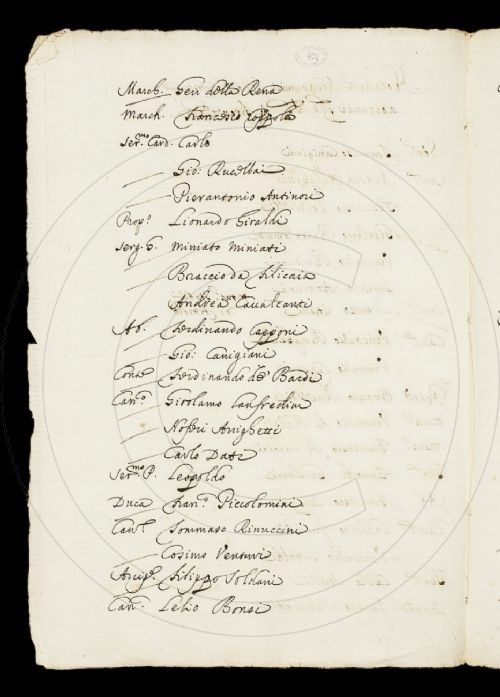 March. Geri della Rena
March. Francesco Coppoli
Ser.mo Card. Carlo
Gio: Rucellai
Pierantonio Antinori
Prop.o Lionardo Giraldi
Serg. G. Miniato Miniati
Braccio da Filicaia
Andrea Cavalcanti
Ab. Ferdinando Capponi
Gio: Canigiani
Conte Ferdinando de' Bardi
Can.o Girolamo Lanfredini
Noferi Anighetti
Carlo Dati
Ser.mo P. Leopoldo
Duca Fran.o Piccolomini
Caval. Tommaso Rinuccini
Cosimo Venturi
Arcip.e Filippo Soldani
Can.o Lelio Bonsi